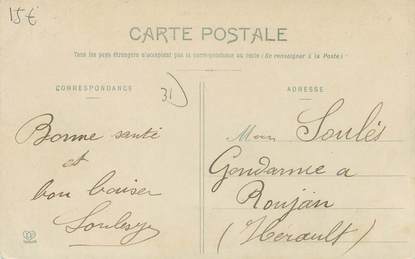 15€
CARTE POSTALE
Tous les pays étrangers n'acceptent pas la correspondance au recto (Se renseigner à la Poste)
CORRESPONDANCE
31
ADRESSE
Bonne santé
et
bon baiser
Monsieur Soulés
Gendarme a
Roujan
(Herault)